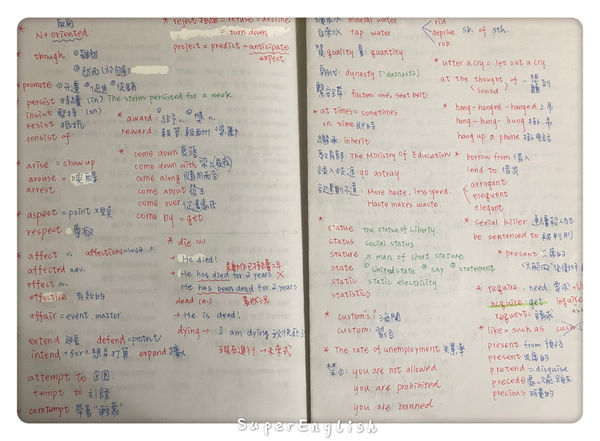 N + oriented
* though ①雖然
②然而
* promote ①升遷 ②促進 ③促銷
persist 持續 (in) The storm persisted for a week.
insist 堅持 (on)
resist 抵抗
consist of
* arise = show up
arouse = 喚醒
arrest
* aspect = point
respect 尊敬
* affect v. affection = love n.
affected adv.
effect n.
effective 有效的
affair = event, matter
extend defend = protect
intend + for = 打算 expand 擴大
attempt to 企圖
tempt to 引誘
contempt
= turn down
project = predict = anticipate
expect
* award: ①給予 ②獎 n.
reward:
* come down
come down with
come along
come about 發生
come over
come by = get
* die (v)
He died!
He has died for 2 years ×
He has been dead for 2 years
dead (a.)
→ He is dead!
dying → I am dying
現在進行 → 未來式
mineral water
自來水 tap water
質 quality 量 quantity
朝代: dynasty [ˈdaɪnəstɪ]
繫安全帶 fasten one's seat belt
* at times = sometimes
on time 即時
繼承: inherit
教育部: The Ministry of Education
誤入歧途 go astray
欲速則不達: More haste, less speed.
Haste makes waste.
* statue the statue of Liberty.
status social status.
stature a man of short stature
state ①United state ②say ③statement
static static electricity
statistics
* customs: 海關
custom: 習俗
* The rate of unemployment 失業率
禁止: you are not allowed
you are prohibited
you are banned
rid
deprive sb. of sth.
rob
* utter a cry = let out a cry
at the thought of 一想到
sound 聽
* hang - hanged - hanged 上吊
hang - hung - hung 掛, 吊
hang up a phone 掛電話
* borrow from 借入
lend to 借出
* arrogant
eloquent
elegant
* serial killer 連續殺人犯
be sentenced to 被判刑
* present 出席的
* require, need, 需求
acquire get inquire
request: 請求
* like = such as such
prevent from 預防
present 出席的
pretend = disguise
precede
precious 珍貴的
SuperEnglish